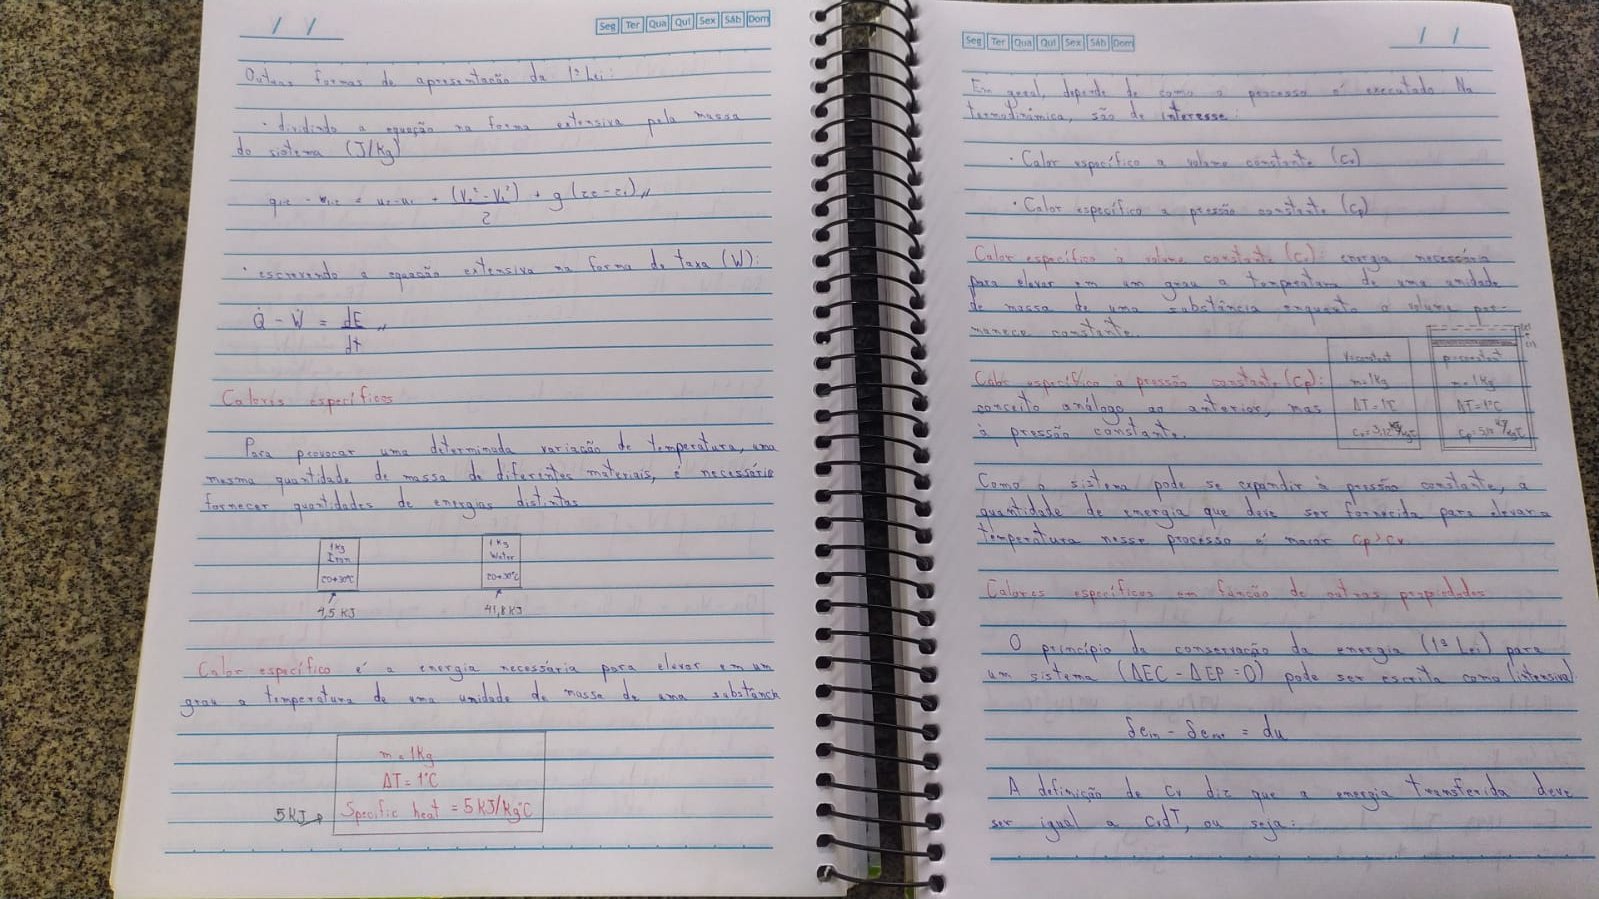 / /
Seg Ter Qua Qui Sex Sáb Dom
Outras formas de apresentação da 1ª Lei:
· dividindo a equação na forma extensiva pela massa
do sistema (J/Kg)
q₁₋₂ - w₁₋₂ = u₂-u₁ + (V₂² - V₁²)/2 + g(z₂-z₁)//
· escrevendo a equação extensiva na forma de taxa (W):
Q̇ - Ẇ = dE/dt //
Calores específicos
Para provocar uma determinada variação de temperatura, uma
mesma quantidade de massa de diferentes materiais, é necessário
fornecer quantidades de energias distintas
1 Kg
Iron
20→30°C
4,5 KJ
1 Kg
Water
20→30°C
41,8 KJ
Calor específico é a energia necessária para elevar em um
grau a temperatura de uma unidade de massa de uma substância
m = 1Kg
ΔT = 1°C
5KJ → Specific heat = 5 KJ/Kg°C
Seg Ter Qua Qui Sex Sáb Dom
/ /
Em geral, depende de como o processo é executado Na
termodinâmica, são de interesse:
· Calor específico a volume constante (Cv)
· Calor específico a pressão constante (Cp)
Calor específico à volume constante (Cv): energia necessária
para elevar em um grau a temperatura de uma unidade
de massa de uma substância enquanto o volume per-
manece constante.
Calor específico à pressão constante (Cp):
conceito análogo ao anterior, mas
à pressão constante.
V=constant
m=1Kg
ΔT=1°C
Cv=3,12 KJ/Kg°C
p=constant
m=1Kg
ΔT=1°C
Como o sistema pode se expandir à pressão constante, a
quantidade de energia que deve ser fornecida para elevar a
temperatura nesse processo é maior Cp > Cv
Calores específicos em função de outras propiedades
O princípio da conservação da energia (1ª Lei) para
um sistema (ΔEC - ΔEP = 0) pode ser escrita como (intensiva)
δein - δeout = du
A definição de Cv diz que a energia transferida deve
ser igual a CvdT, ou seja: